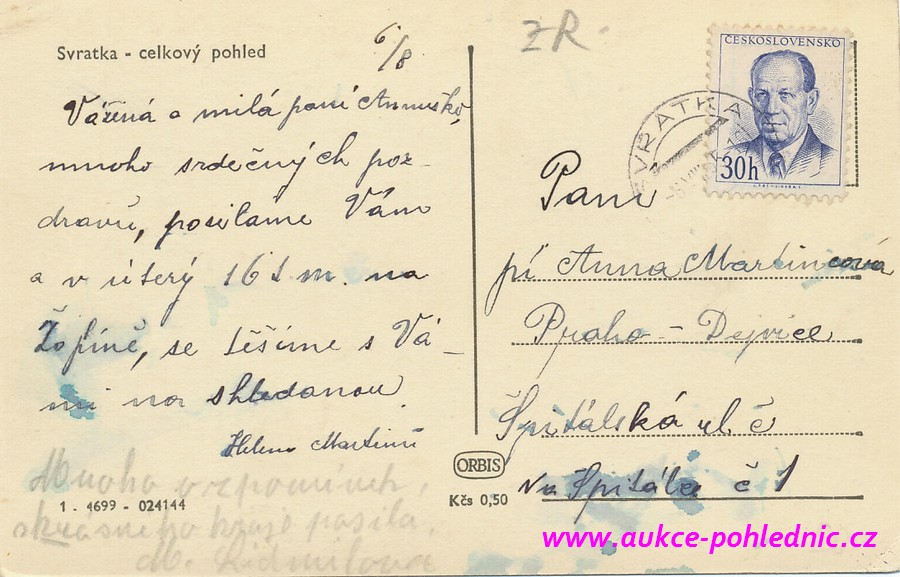 Svratka - celkový pohled
6/8
ZR.
ČESKOSLOVENSKO
30h
SVRATKA
Vážená a milá paní Annuško,
mnoho srdečných poz-
dravů, posilame Vám
a v úterý 16 t. m. na
Žofíně, se těšíme s Vá-
mi na shledanou
Helena Martinů
Mnoho vzpomínek
z krásného kraje posílá
M.
1 - 4699 - 024144
Paní
pí Anna Martincová
Praha - Dejvice
Špitálská ul č
Na Špitálce č 1
ORBIS
Kčs 0,50
www.aukce-pohlednic.cz